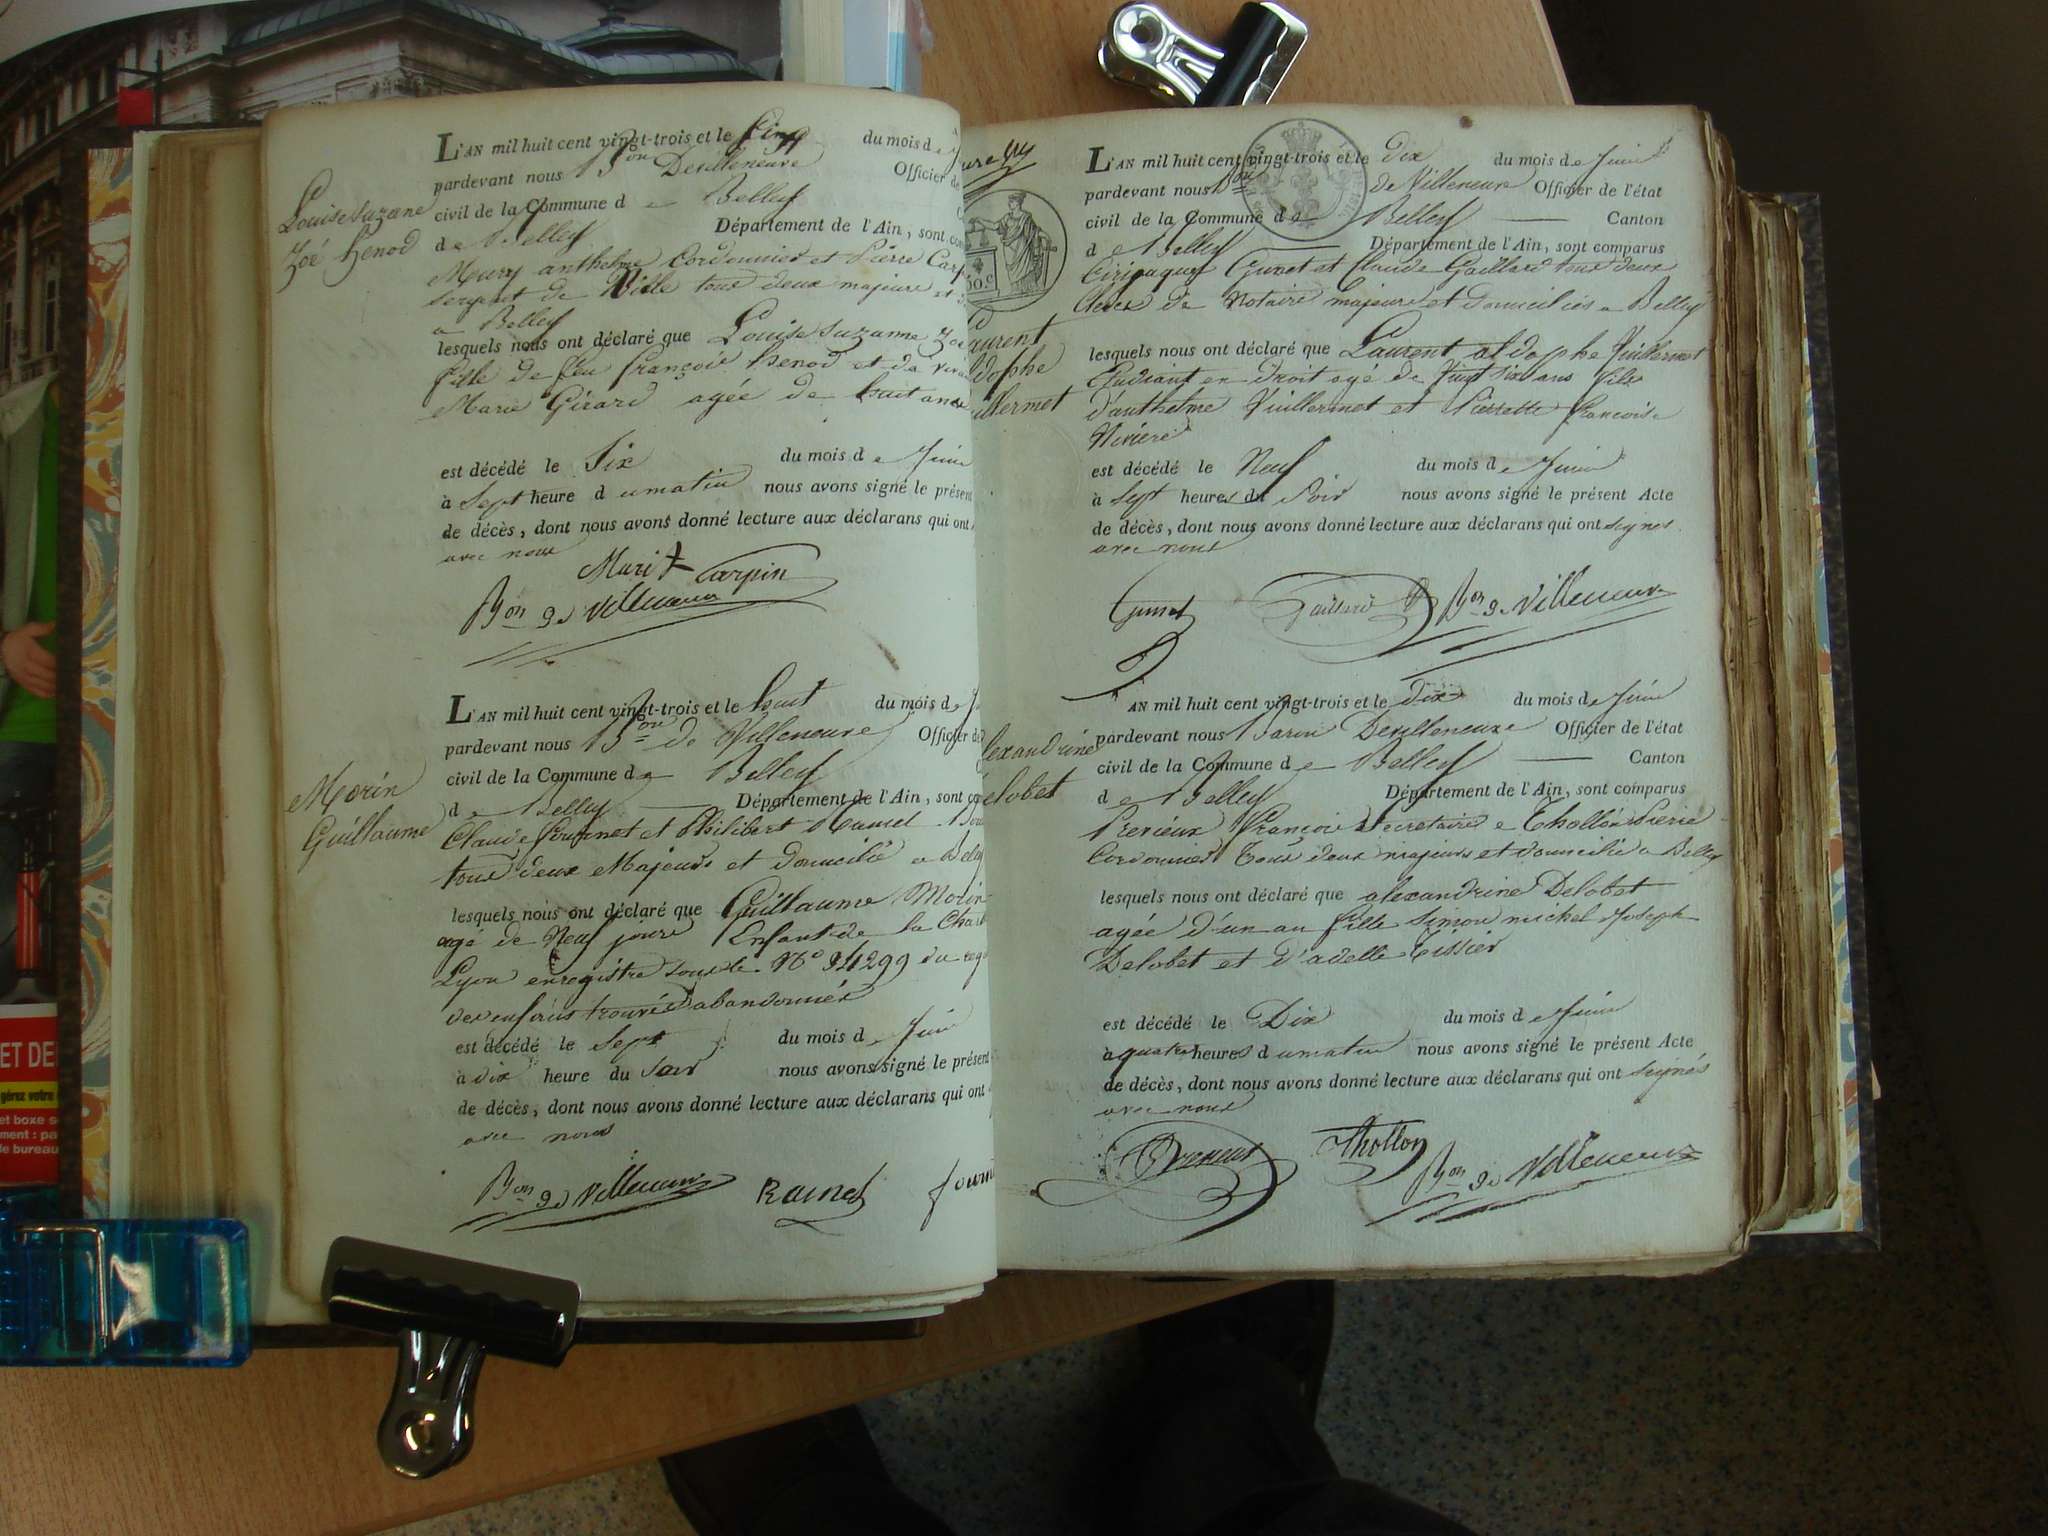 L'AN mil huit cent vingt-trois et le Cinq du mois de
pardevant nous Bon Devilleneuve Officier de
civil de la Commune de Belley
de Belley Département de l'Ain, sont com
Mury anthelme Cordonnier et Pierre Carpin
sergent de Ville tous deux majeurs et
a Belley
lesquels nous ont déclaré que Louise Suzanne Zoé
fille de feu françois henod et de
Marie Girard agée de huit ans
est décédé le Six du mois de Juin
à Sept heure du matin nous avons signé le présent
de décès, dont nous avons donné lecture aux déclarans qui ont
avec nous
Louise Suzanne
Zoé henod
Muri Carpin
Bon de Villeneuve
L'AN mil huit cent vingt-trois et le huit du mois de
pardevant nous Bon de Villeneuve Officier de
civil de la Commune de Belley
de Belley Département de l'Ain, sont co
Claude fournet et Philibert
tous deux Majeurs et domicilié a Belley
lesquels nous ont déclaré que Guillaume Morin
agé de Neuf jours Enfant de la Charité
Lyon enregistré sous le No 34299 du reg
des enfants trouvés abandonnés
est décédé le Sept du mois de Juin
à dix heure du soir nous avons signé le présent
de décès, dont nous avons donné lecture aux déclarans qui ont
avec nous
Morin
Guillaume
Bon de Villeneuve Ramel fourn
L'AN mil huit cent vingt-trois et le dix du mois de Juin
pardevant nous Bon de Villeneuve Officier de l'état
civil de la Commune de Belley Canton
de Belley Département de l'Ain, sont comparus
Ciriaque Gunet et Claude Gaillard tous deux
Clercs de Notaire majeurs et domiciliés a Belley
lesquels nous ont déclaré que Laurent aldophe Vuillermet
Etudiant en droit agé de Vingt six ans fils
d'anthelme Vuillermet et Pierrette françoise
Riviere
est décédé le Neuf du mois de Juin
à Sept heures du Soir nous avons signé le présent Acte
de décès, dont nous avons donné lecture aux déclarans qui ont signés
avec nous
50.c
aurent
ldophe
illermet
Gunet Gaillard Bon de Villeneuve
AN mil huit cent vingt-trois et le dix du mois de Juin
pardevant nous Baron Devilleneuve Officier de l'état
civil de la Commune de Belley Canton
de Belley Département de l'Ain, sont comparus
Prerieux François Secretaire e Thollon Pierre
Cordonnier Tous deux majeurs et domicilié a Belley
lesquels nous ont déclaré que alexandrine Delobet
agée d'un an fille Simon michel Joseph
Delobet et d'adelle Tissier
est décédé le Dix du mois de Juin
à quatre heures du matin nous avons signé le présent Acte
de décès, dont nous avons donné lecture aux déclarans qui ont signés
avec nous
lexandrine
elobet
Thollon Bon de Villeneuve
ET DE
gérez votre
et boxe
ment : pa
de bureau